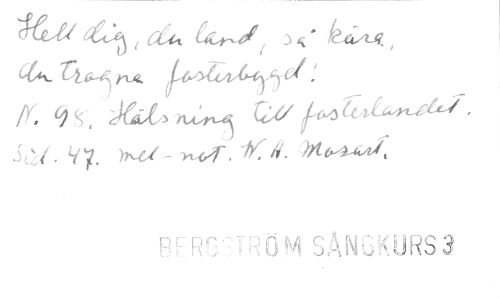 Hell dig, du land, så kära,
du trogna fosterbygd!
N. 98. Hälsning till fosterlandet.
Sid. 47. mel-not. W. A. Mozart.
BERGSTRÖM SÅNGKURS 3